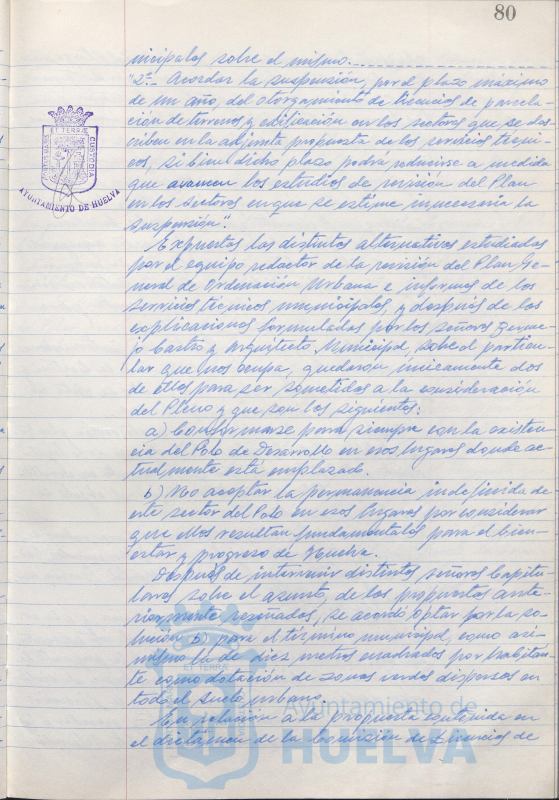 80
nicipales sobre el mismo.
"2º.- Acordar la suspensión, por el plazo máximo
de un año, del otorgamiento de licencias de parcela-
ción de terrenos y edificación en los sectores que se des-
criben en la adjunta propuesta de los servicios técni-
cos, si bien dicho plazo podrá reducirse a medida
que avancen los estudios de revisión del Plan
en los sectores en que se estime innecesaria la
suspensión".
Expuestas las distintas alternativas estudiadas
por el equipo redactor de la revisión del Plan Ge-
neral de Ordenación Urbana e informes de los
servicios técnicos municipales, y después de las
explicaciones formuladas por los señores Berme-
jo Castro y Arquitecto Municipal, sobre el particu-
lar que nos ocupa, quedarón únicamente dos
de ellas para ser sometidas a la consideración
del Pleno y que son las siguientes:
a) Conformarse para siempre con la existen-
cia del Polo de Desarrollo en esos lugares donde ac-
tualmente está emplazado.
b) No aceptar la permanencia indefinida de
este sector del Polo en esos lugares por considerar
que ellos resultan fundamentales para el bien-
estar y progreso de Huelva.
Después de intervenir distintos señores Capitu-
lares sobre el asunto, de las propuestas ante-
riormente reseñadas, se acordó optar por la so-
lución b) para el término municipal, como asi-
mismo la de diez metros cuadrados por habitan-
te como dotación de zonas verdes dispersas en
todo el suelo urbano.
En relación a la propuesta contenida en
el dictamen de la Comisión de Licencias de
ET TERRÆ
CUSTODIA
AYUNTAMIENTO DE HUELVA
Ayuntamiento de
HUELVA